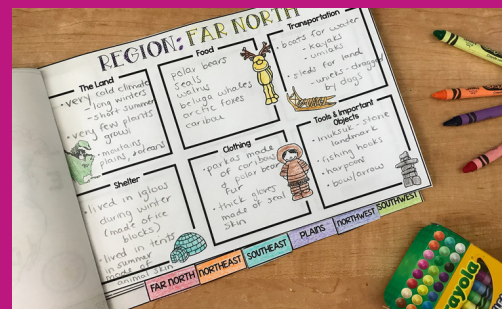 REGION: FAR NORTH
The Land
• very cold climate
- long winters
- short summer
• very few plants
grow
• moutains,
plains,
Food
polar bears
seals
walrus
beluga whales
arctic foxes
caribou
Transportation
• boats for water
- kayaks
- umiaks
• sleds for land
- dragged
by dogs
Shelter
• lived in igloos
during winter
(made of ice
blocks)
• lived in tents
in summer
made of
animal skin
Clothing
• parkas made
of caribou
& polar bear
fur
• thick gloves
made of seal
skin
Tools & Important
Objects
• inuksuk - stone
landmark
• fishing hooks
• harpoons
• bow/arrow
FAR NORTH
NORTHEAST
SOUTHEAST
PLAINS
NORTHWEST
SOUTHWEST
crayola